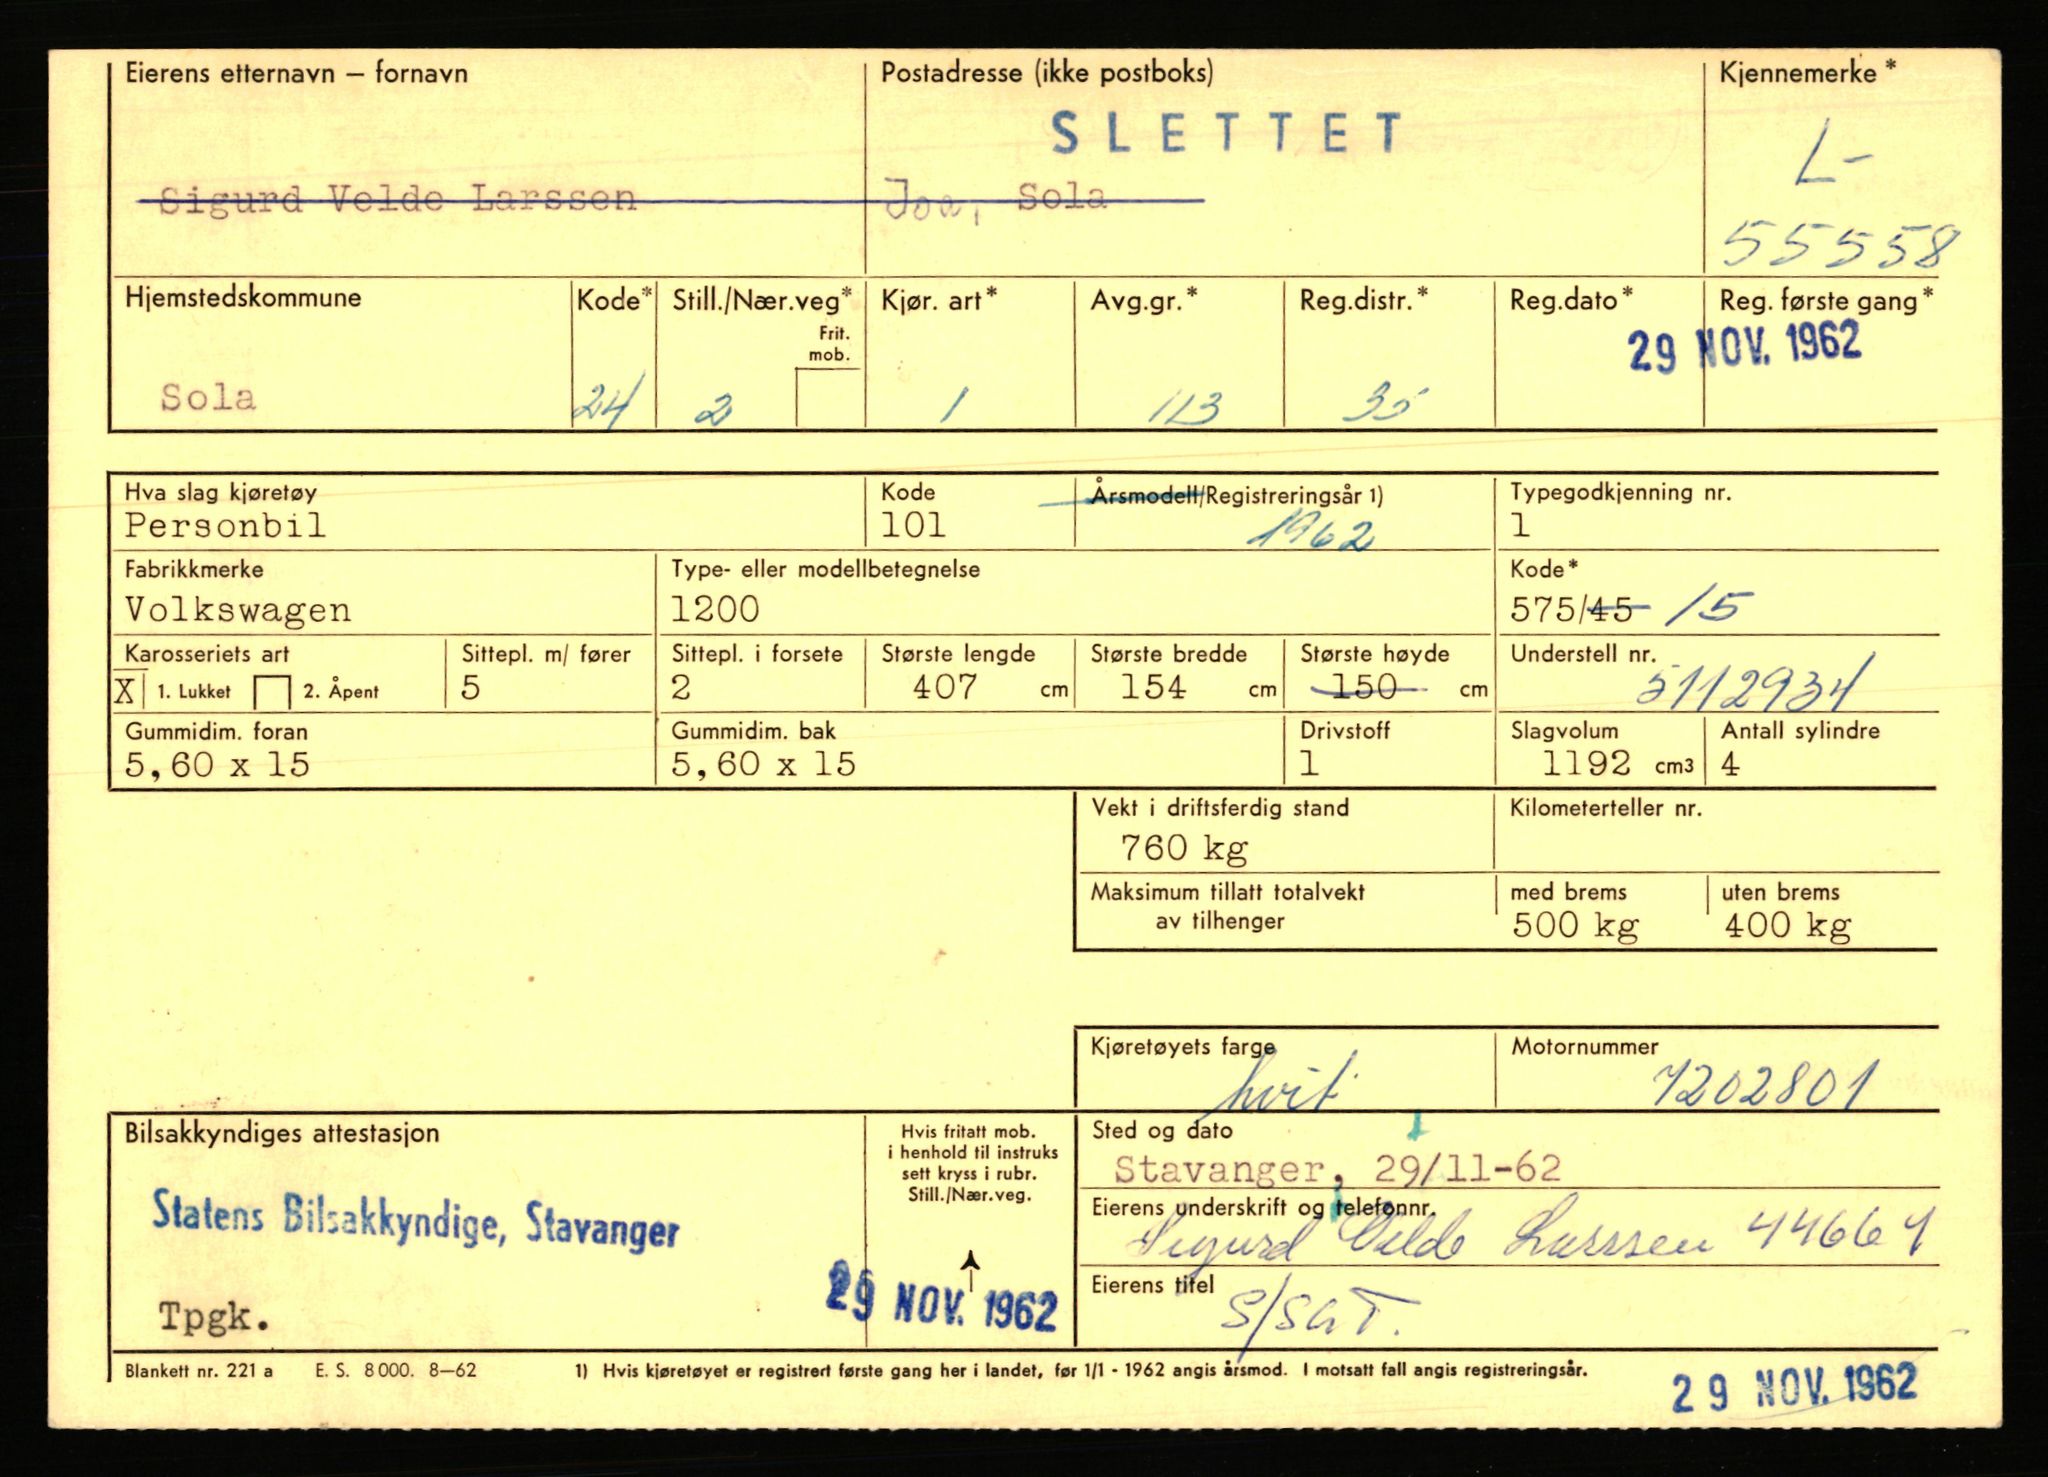 Eierens etternavn – fornavn Postadresse (ikke postboks) Kjennemerke*
SLETTET
L-
Sigurd Velde Larssen Joa, Sola
55558
Hjemstedskommune Kode* Still./Nær.veg* Kjør. art* Avg.gr.* Reg.distr.* Reg.dato* Reg. første gang*
Frit. mob.
29 NOV. 1962
Sola 24 2 1 113 35
Hva slag kjøretøy Kode Årsmodell/Registreringsår 1) Typegodkjenning nr.
Personbil 101 1962 1
Fabrikkmerke Type- eller modellbetegnelse Kode*
Volkswagen 1200 575/45 15
Karosseriets art Sittepl. m/ fører Sittepl. i forsete Største lengde Største bredde Største høyde Understell nr.
X 1. Lukket 2. Åpent 5 2 407 cm 154 cm 150 cm 5112934
Gummidim. foran Gummidim. bak Drivstoff Slagvolum Antall sylindre
5,60 x 15 5,60 x 15 1 1192 cm3 4
Vekt i driftsferdig stand Kilometerteller nr.
760 kg
Maksimum tillatt totalvekt med brems uten brems
av tilhenger 500 kg 400 kg
Kjøretøyets farge Motornummer
hvit 7202801
Bilsakkyndiges attestasjon Hvis fritatt mob. Sted og dato
i henhold til instruks
sett kryss i rubr.
Still./Nær.veg.
Stavanger, 29/11-62
Eierens underskrift og telefonnr.
Statens Bilsakkyndige, Stavanger
Sigurd Velde Larssen 44664
Eierens titel
29 NOV. 1962
Tpgk. S/SGT.
Blankett nr. 221 a E. S. 8000. 8–62 1) Hvis kjøretøyet er registrert første gang her i landet, før 1/1 - 1962 angis årsmod. I motsatt fall angis registreringsår.
29 NOV. 1962